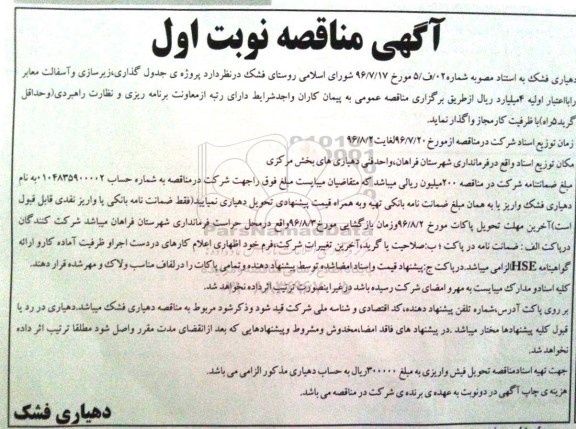 آگهی مناقصه نوبت اول
دهیاری فشک به استناد مصوبه شماره۰۲/ف/۵ مورخ ۹۶/۷/۱۷ شورای اسلامی روستای فشک درنظردارد پروژه ی جدول گذاری،زیرسازی وآسفالت معابر
رابااعتبار اولیه ۴میلیارد ریال ازطریق برگزاری مناقصه عمومی به پیمان کاران واجدشرایط دارای رتبه ازمعاونت برنامه ریزی و نظارت راهبردی(وحداقل
گرید۵راه)با ظرفیت کارمجاز واگذار نماید.
زمان توزیع اسناد شرکت درمناقصه ازمورخ۹۶/۷/۲۰لغایت۹۶/۸/۲
مکان توزیع اسناد واقع درفرمانداری شهرستان فراهان،واحدفنی دهیاری های بخش مرکزی
مبلغ ضمانتنامه شرکت در مناقصه ۲۰۰میلیون ریالی میباشد که متقاضیان میبایست مبلغ فوق راجهت شرکت درمناقصه به شماره حساب ۰۱۰۴۸۳۵۹۰۰۰۰۲به نام
دهیاری فشک واریز یا به همان مبلغ ضمانت نامه بانکی تهیه وبه همراه قیمت پیشنهادی تحویل دهیاری نمایید(فقط ضمانت نامه بانکی یا واریز نقدی قابل قبول
است)آخرین مهلت تحویل پاکات مورخ ۹۶/۸/۲وزمان بازگشایی مورخ۹۶/۸/۳واقع درمحل حراست فرمانداری شهرستان فراهان میباشد شرکت کنندگان
درپاکت الف : ضمانت نامه در پاکت ؛ ب:صلاحیت یا گرید،آخرین تغییرات شرکت،فرم خود اظهاری اعلام کارهای دردست اجراو ظرفیت آماده کارو ارائه
گواهینامه HSEالزامی میباشد.درپاکت ج:پیشنهاد قیمت واسناد امضاشده توسط پیشنهاد دهنده وتمامی پاکات را درلفاف مناسب ولاک و مهرشده قرار دهند.
کلیه اسنادو مدارک میبایست به مهرو امضای شرکت رسیده باشد درغیراینصورت ترتیب اثرداده نخواهد شد.
بر روی پاکت آدرس،شماره تلفن پیشنهاد دهنده،کد اقتصادی و شناسه ملی شرکت قید شود وذکرشود مربوط به مناقصه دهیاری فشک میباشد.دهیاری در رد یا
قبول کلیه پیشنهادها مختار میباشد .در پیشنهاد های فاقد امضا،مخدوش ومشروط وپیشنهادهایی که بعد ازانقضای مدت مقرر واصل شود مطلقا ترتیب اثر داده
نخواهد شد.
جهت تهیه اسنادمناقصه تحویل فیش واریزی به مبلغ ۳۰۰۰۰۰ریال به حساب دهیاری مذکور الزامی می باشد.
هزینه ی چاپ آگهی در دونوبت به عهده ی برنده ی شرکت در مناقصه می باشد.
دهیاری فشک
ParsNamadData